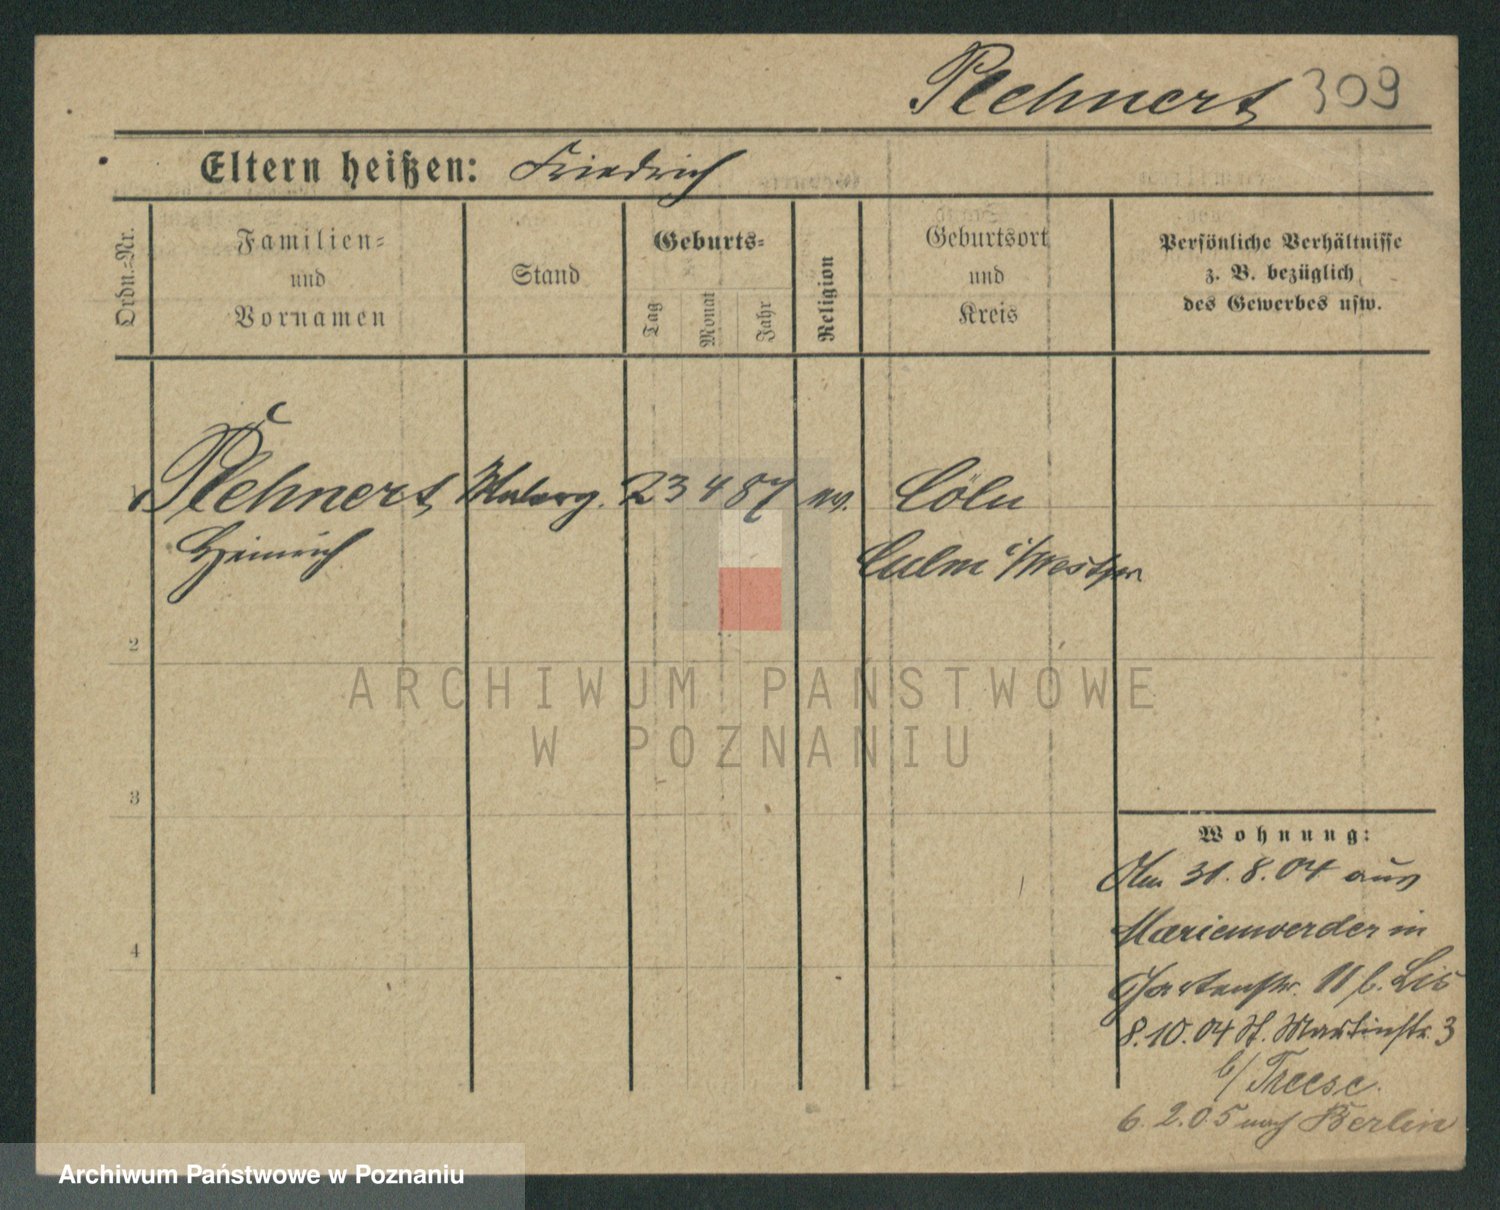 Rehnert 309
Eltern heißen: Friedrich
Ordn.-Nr.
Familien-
und
Vornamen
Stand
Geburts-
Tag
Monat
Jahr
Religion
Geburtsort
und
Kreis
Persönliche Verhältnisse
z. B. bezüglich
des Gewerbes usw.
1 Rehnert 23 4 87 ev. Cöln
Heinrich Culm i/Westpr
2
3
4
Wohnung:
31.8.04 aus
Marienwerder in
Gartenstr. 11 b. Lis
8.10.04 St. Martinstr. 3
b/ Treese.
6.2.05 nach Berlin
ARCHIWUM PAŃSTWOWE
W POZNANIU
Archiwum Państwowe w Poznaniu